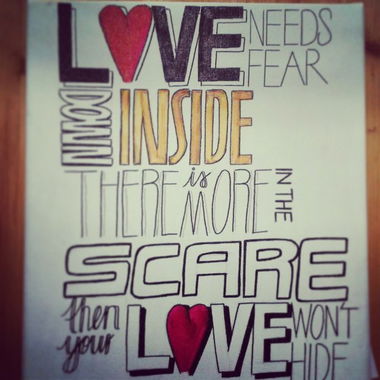 LOVE NEEDS FEAR
DOWN INSIDE
THERE is MORE IN THE
SCARE
then your LOVE WON'T HIDE